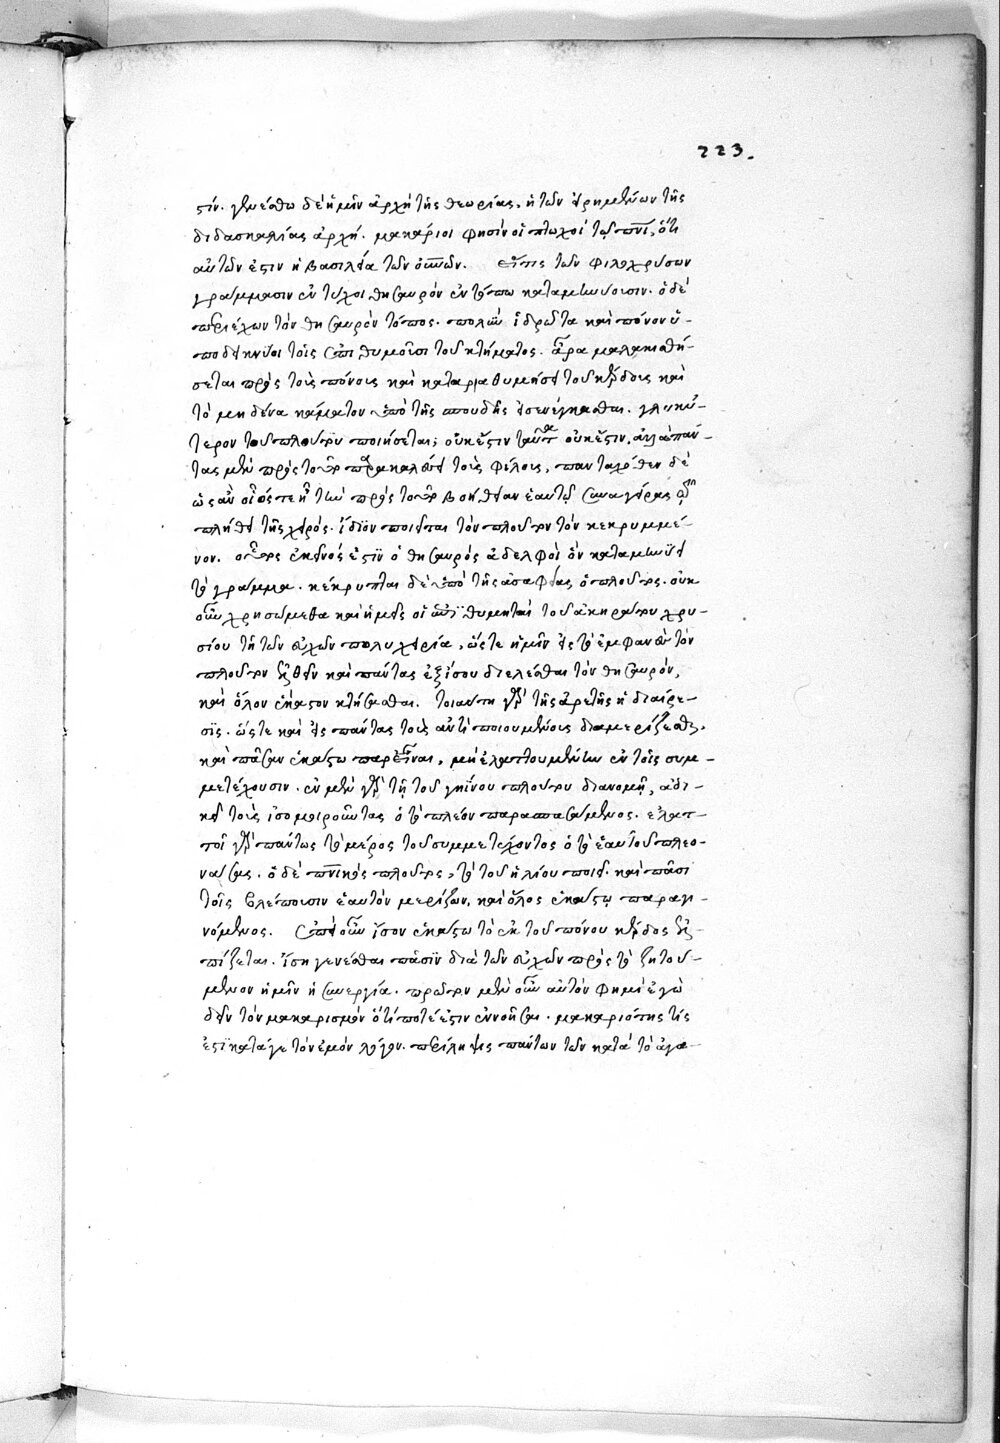 223.
σιν. γενέσθω δὲ ἡμῖν ἀρχὴ τῆς θεωρίας, ἡ τῶν εἰρημένων τῆς
διδασκαλίας ἀρχή. μακάριοι φησὶν οἱ πτωχοὶ τῷ πνι, ὅτι
αὐτῶν ἐστιν ἡ βασιλεία τῶν οὐνῶν. εἴ τις τῶν φιλοχρύσων
γράμμασιν ἐντύχοι θησαυρὸν ἐν τόπω καταμηνύουσιν. ὁ δὲ
περιέχων τὸν θησαυρὸν τόπος. πολὺν ἱδρῶτα καὶ πόνον ὑ-
ποδεικνύοι τοῖς ἐπιθυμοῦσι τοῦ κτήματος. ἆρα μαλακισθή-
σεται πρὸς τοὺς πόνους καὶ καταραθυμήσει τοῦ κέρδους καὶ
τὸ μηδένα κάματον ὑπὸ τῆς σπουδῆς εἰσενέγκασθαι. γλυκύ-
τερον τοῦ πλούτου ποιήσεται; οὐκ ἔστιν ταῦτα οὐκ ἔστιν. ἀλλὰ πάν-
τας μὲν πρὸς τοῦτο παρακαλέσει τοὺς φίλους, πανταχόθεν δὲ
ὡς ἂν οἷός τε ᾖ τὴν πρὸς τοῦτο βοήθειαν ἑαυτῷ συναγείρας
πλήθει τῆς χειρός. ἴδιον ποιεῖται τὸν πλοῦτον τὸν κεκρυμμέ-
νον. οὗτος ἐκεῖνός ἐστιν ὁ θησαυρὸς ἀδελφοὶ ὃν καταμηνύει
τὸ γράμμα. κέκρυπται δὲ ὑπὸ τῆς ἀσαφείας ὁ πλοῦτος. οὐκ
οὖν χρησώμεθα καὶ ἡμεῖς οἱ ἐπιθυμηταὶ τοῦ ἀκηράτου χρυ-
σίου τῆ τῶν εὐχῶν πολυχειρία, ὥστε ἡμῖν εἰς τὸ ἐμφανὲς τὸν
πλοῦτον ἐλθεῖν καὶ πάντας ἐξίσου διελέσθαι τὸν θησαυρὸν,
καὶ ὅλον ἕκαστον κτήσασθαι. τοιαύτη γὰρ τῆς ἀρετῆς ἡ διαίρε-
σις. ὥστε καὶ εἰς πάντας τοὺς ἀντιποιουμένους διαμερίζεσθαι.
καὶ πᾶσαν ἑκάστω παρεῖναι, μὴ ἐλαττουμένων ἐν τοῖς συμ-
μετέχουσιν. ἐν μὲν γὰρ τῇ τοῦ γηίνου πλούτου διανομῇ, ἀδι-
κεῖ τοὺς ἰσομοιροῦντας ὁ τὸ πλέον παρασπασάμενος. ἐλατ-
τοῖ γὰρ πάντως τὸ μέρος τοῦ συμμετέχοντος ὁ τὸ ἑαυτοῦ πλεο-
νάσας. ὁ δὲ πνικὸς πλοῦτος, τὸ τοῦ ἡλίου ποιεῖ. καὶ πᾶσι
τοῖς βλέπουσιν ἑαυτὸν μερίζων, καὶ ὅλος ἑκάστῳ παραγι-
νόμενος. ἐπεὶ οὖν ἴσον ἑκάστω τὸ ἐκ τοῦ πόνου κέρδος ἐλ-
πίζεται. ἴση γενέσθαι πᾶσιν διὰ τῶν εὐχῶν πρὸς τὸ ζητού-
μενον ἡμῖν ἡ συνεργία. πρῶτον μὲν οὖν αὐτὸν φημὶ ἐγὼ
δεῖν τὸν μακαρισμὸν ὅτί ποτέ ἐστιν ἐννοῆσαι. μακαριότης τίς
ἐστὶ κατά γε τὸν ἐμὸν λόγον. περίληψις πάντων τῶν κατὰ τὸ ἀγα-